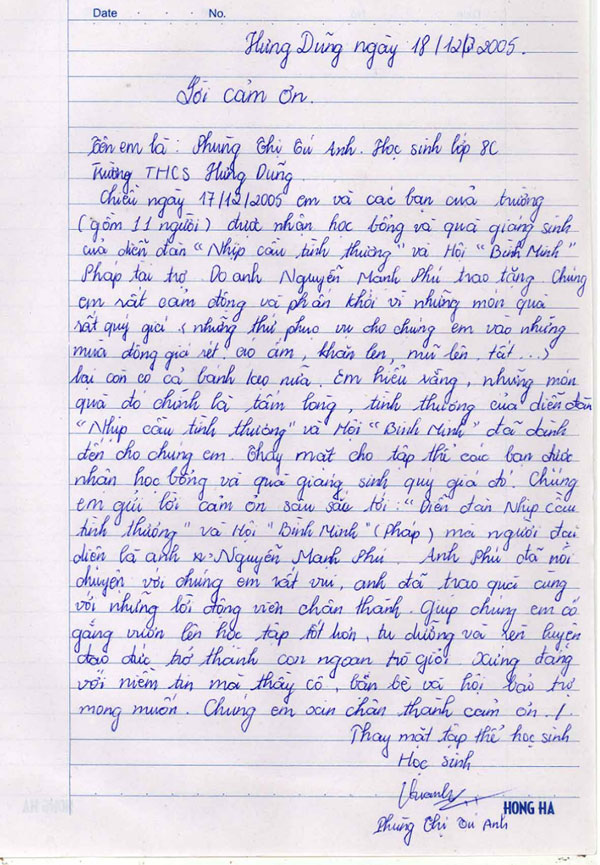 Date . . . No.
Hưng Dũng ngày 18/12/2005.
Lời cảm ơn.
Tên em là : Phùng Thị Tú Anh. Học sinh lớp 8C
Trường THCS Hưng Dũng.
Chiều ngày 17/12/2005 em và các bạn của trường
(gồm 11 người) được nhận học bổng và quà giáng sinh
của diễn đàn "Nhịp cầu tình thương" và Hội "Bình Minh"
Pháp tài trợ. Do anh Nguyễn Mạnh Phú trao tặng. Chúng
em rất cảm động và phấn khởi vì những món quà
rất quý giá (những thứ phục vụ cho chúng em vào những
mùa đông giá rét. áo ấm, khăn len, mũ len, tất...)
lại còn có cả bánh kẹo nữa. Em hiểu rằng, những món
quà đó chính là tấm lòng, tình thương của diễn đàn
"Nhịp cầu tình thương" và Hội "Bình Minh" đã dành
đến cho chúng em. Thay mặt cho tập thể các bạn được
nhận học bổng và quà giáng sinh quý giá đó. Chúng
em gửi lời cảm ơn sâu sắc tới: "Diễn đàn Nhịp cầu
tình thương" và Hội "Bình Minh" (Pháp) mà người đại
diện là anh Nguyễn Mạnh Phú. Anh Phú đã nói
chuyện với chúng em rất vui, anh đã trao quà cùng
với những lời động viên chân thành. Giúp chúng em cố
gắng vươn lên học tập tốt hơn, tu dưỡng và rèn luyện
đạo đức trở thành con ngoan trò giỏi. Xứng đáng
với niềm tin mà thầy cô, bạn bè và hội bảo trợ
mong muốn. Chúng em xin chân thành cảm ơn./.
Thay mặt tập thể học sinh
Học sinh
HONG HA
Phùng Thị Tú Anh